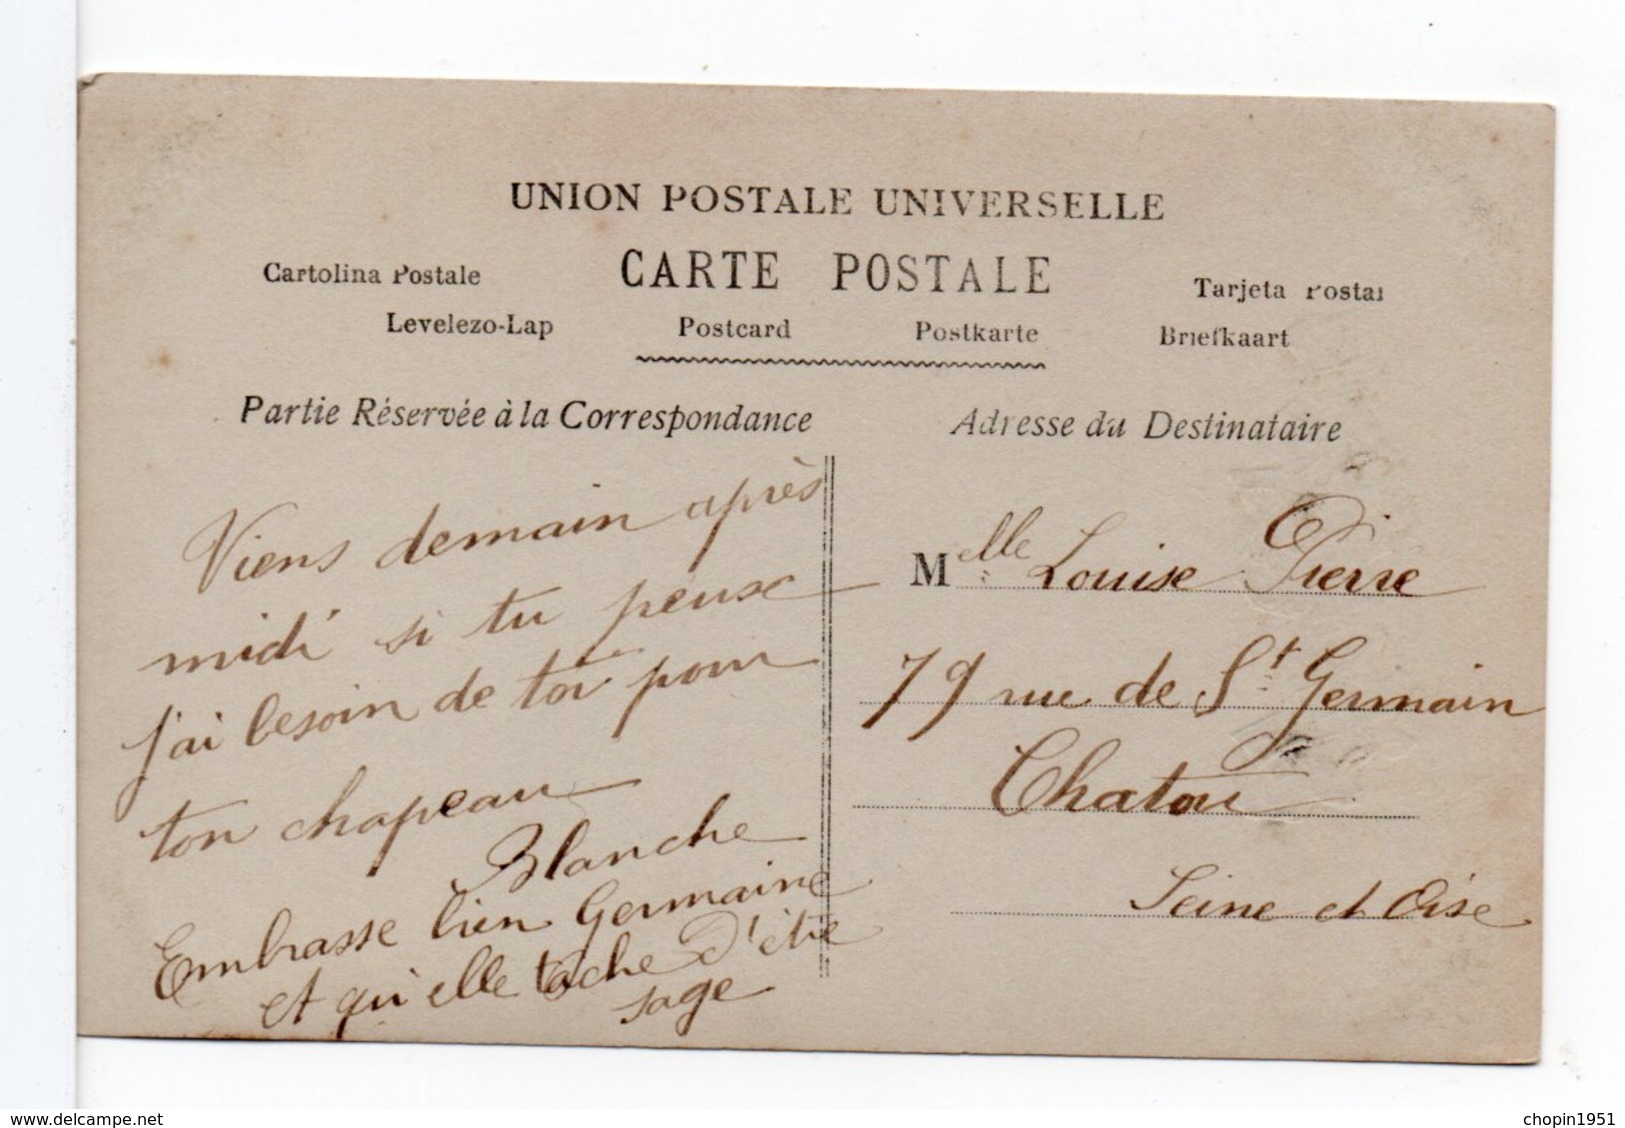 UNION POSTALE UNIVERSELLE
CARTE POSTALE
Cartolina Postale
Tarjeta Postal
Levelezo-Lap Postcard Postkarte Briefkaart
Partie Réservée à la Correspondance
Adresse du Destinataire
Viens demain après
midi si tu peux
j'ai besoin de toi pour
ton chapeau
Blanche
Embrasse bien Germaine
et qu'elle tache d'être
sage
Melle Louise Pierre
79 rue de St Germain
Chatou
Seine et Oise
www.delcampe.net
chopin1951